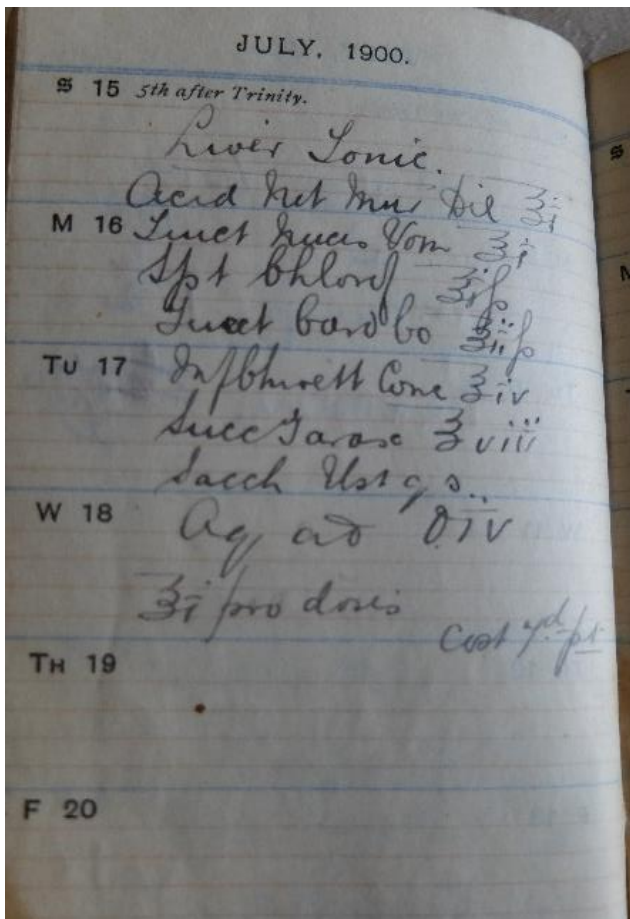 JULY, 1900.
S 15 5th after Trinity.
Liver Tonic.
Acid Nit Mur Dil ℥i
M 16 Tinct Nucis Vom ℥i
Spt Chlorof ℥iſs
Tinct Card Co ℥iiſs
TU 17 Inf Chirett Conc ℥iv
Succ Tarax ℥viii
Sacch Ust qs
W 18 Aq ad Oiv
℥i pro dosis
Cost 7d. pt
TH 19
F 20